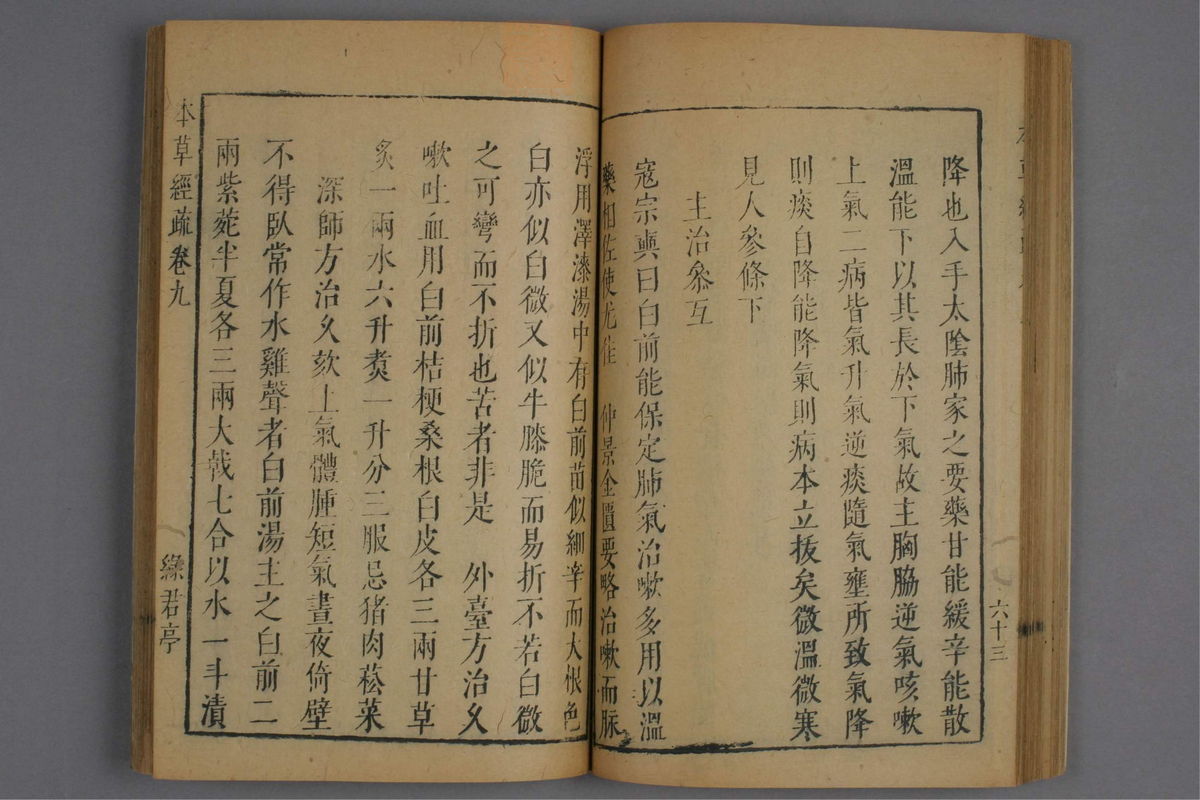 六十三
降也入手太陰肺家之要藥甘能緩辛能散
溫能下以其長於下氣故主胸脇逆氣咳嗽
上氣二病皆氣升氣逆痰隨氣壅所致氣降
則痰自降能降氣則病本立拔矣微溫微寒
見人參條下
主治叅互
寇宗奭曰白前能保定肺氣治嗽多用以溫
藥相佐使尤佳　仲景金匱要略治嗽而脉
浮用澤漆湯中有白前苗似細辛而大根色
白亦似白微又似牛膝脆而易折不若白微
之可彎而不折也苦者非是　外臺方治久
嗽吐血用白前桔梗桑根白皮各三兩甘草
炙一兩水六升煑一升分三服忌猪肉菘菜
深師方治久欬上氣體腫短氣晝夜倚壁
不得臥常作水雞聲者白前湯主之白前二
兩紫菀半夏各三兩大戟七合以水一斗漬
本草經疏 卷九
綠君亭